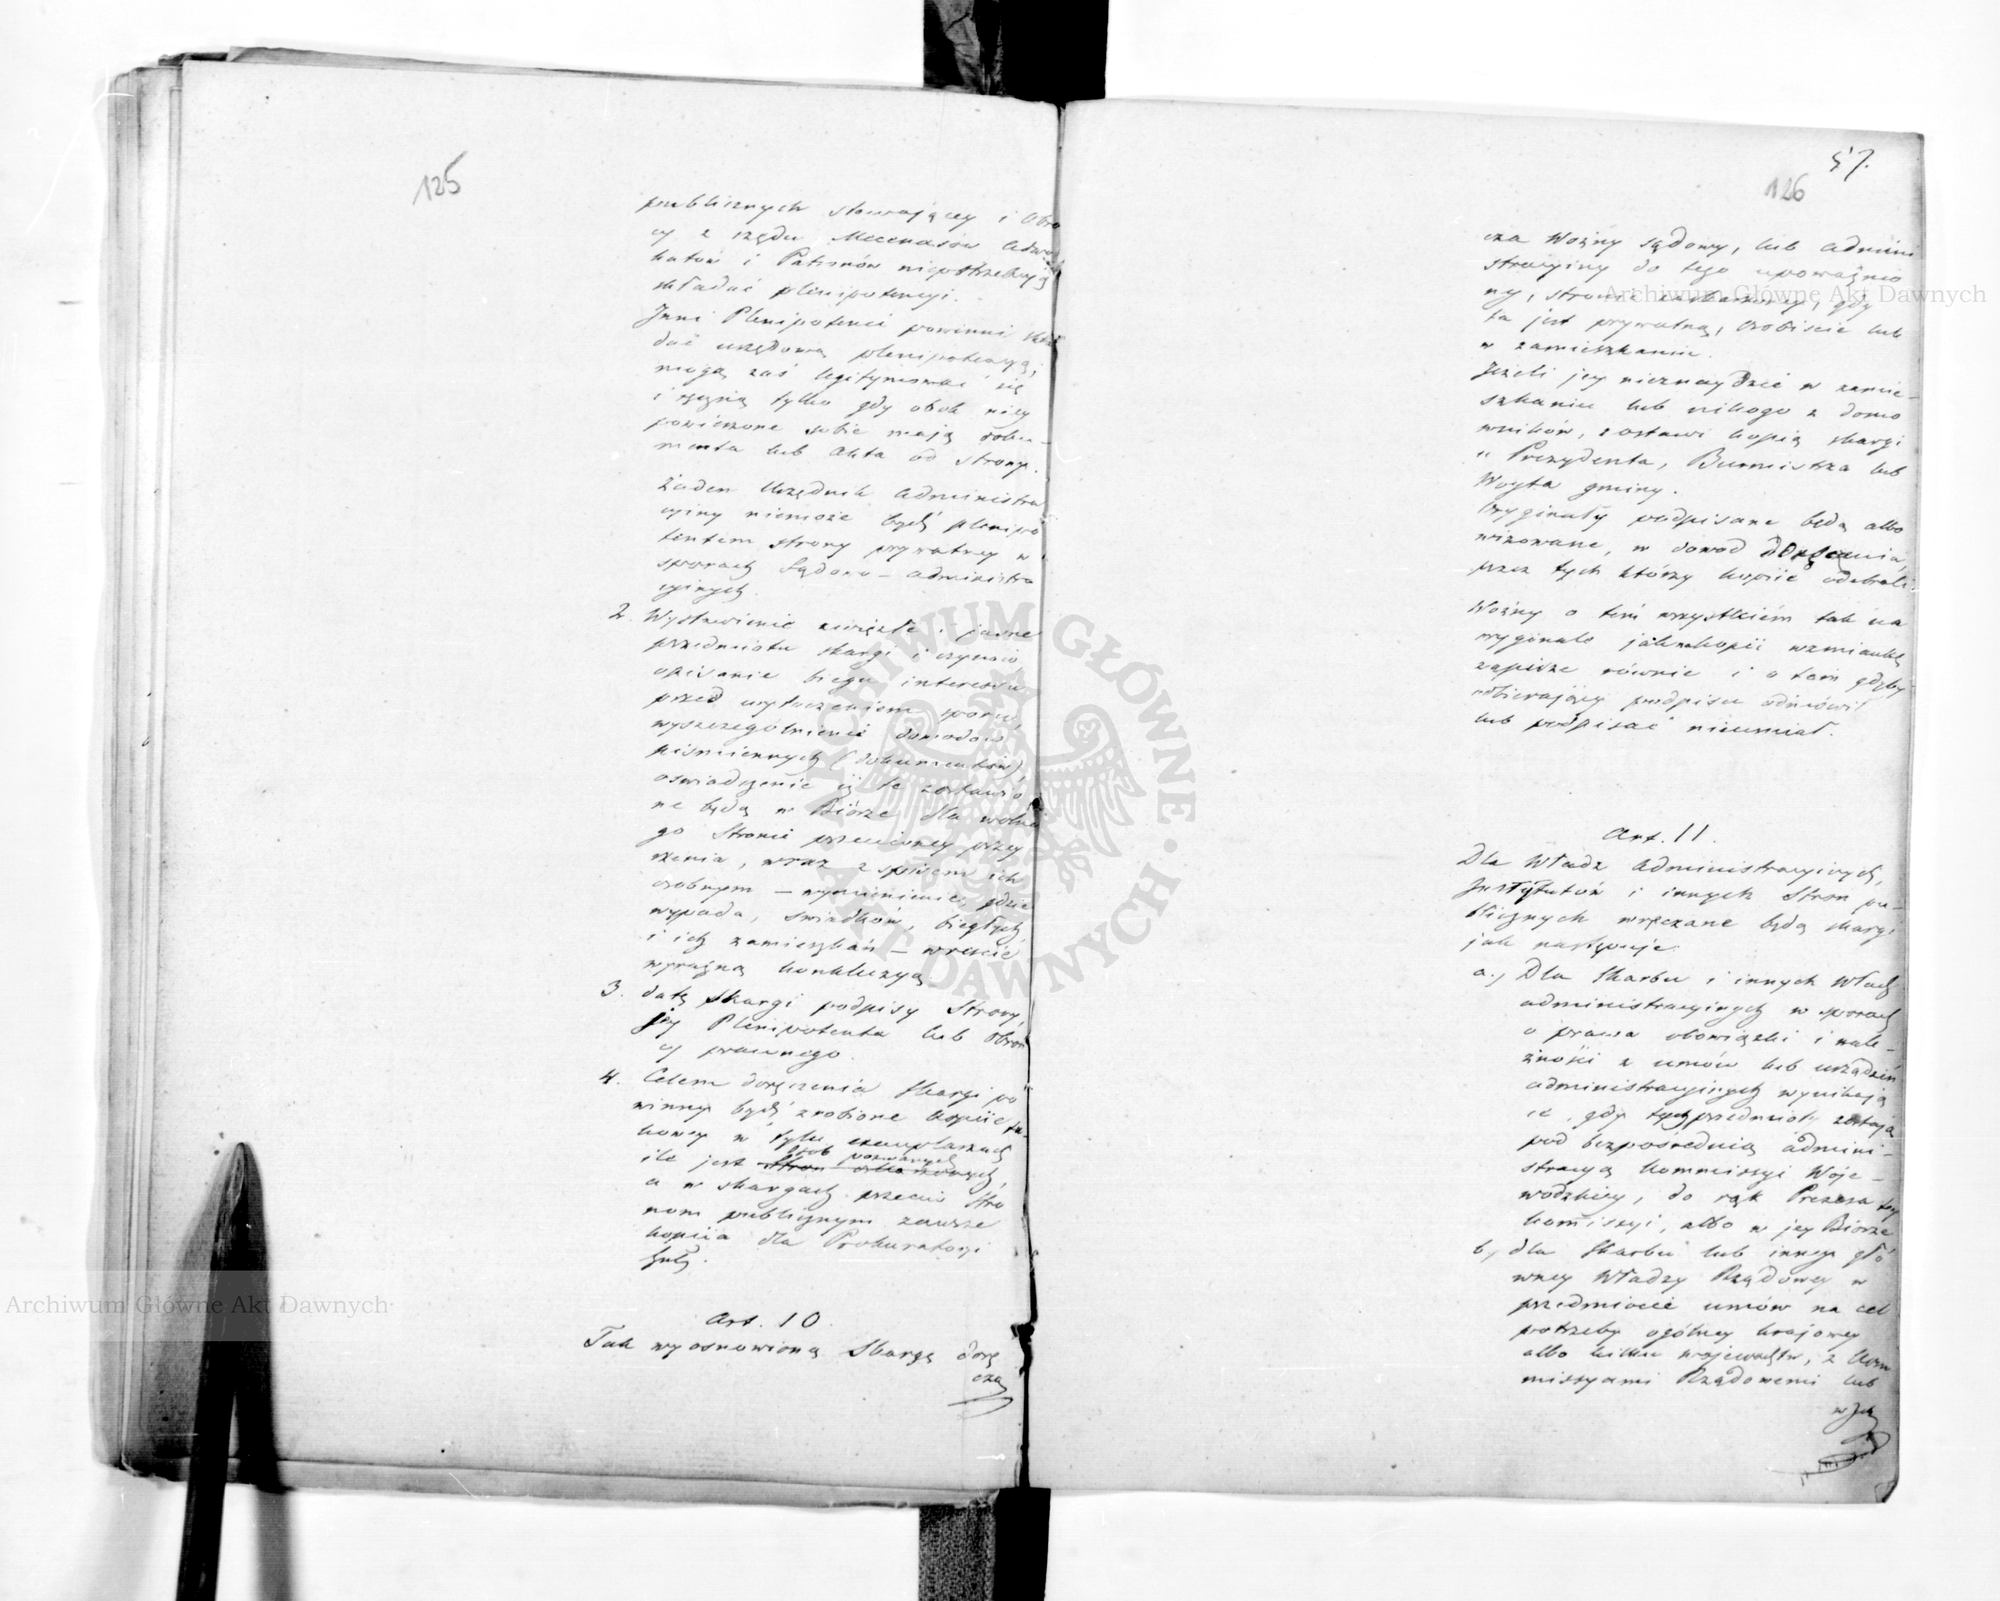 125
publicznych stawający i Obro
cy z rzędu Mecenasów Adwo
katów i Patronów niepotrzebują
składać plenipotencyi.
Inni Plenipotenci powinni skła
dać urzędową plenipotencyą,
mogą zaś legitymować się
i ręczną tylko gdy obok niey
powierzone sobie mają doku-
menta lub Akta od strony.
Żaden Urzędnik administra
cyiny niemoże bydź plenipo
tentem strony prywatney w
sporach Sądowo-administra
cyinych.
2. Wystawienie zwięzłe i jasne
przedmiotu skargi i czynio
opisanie biegu interessu
przed wytoczeniem sporu,
wyszczególnienie dowodów
piśmiennych (dokumentów)
oświadczenie iż te zostawio
ne będą w Biórze dla wolne
go Stronie przeciwney przey
rzenia, wraz z spisem ich
osobnym – wymienienie, gdzie
wypada, świadków, biegłych
i ich zamieszkań – wreście
wyraźną konkluzyą
3. datę skargi podpisy Strony,
jey Plenipotenta lub Obroń
cy prawnego.
4. Celem doręczenia Skargi po
winny bydź zrobione kopiie ta-
kowey w tylu exemplarzach
osób pozwanych
ile jest Stron oskarżonych,
a w skargach przeciw Stro
nom publicznym zawsze
kopiia dla Prokuratoryi
Gnlney.
Art. 10.
Tak wyosnowioną Skargę dorę
cza
57.
126
cza Woźny sądowy, lub admini
stracyiny do tego upoważnio
ny, stronie zaskarżoney, gdy
ta jest prywatną, osobiście lub
w zamieszkaniu.
Jeżeli jey nieznaydzie w zamie-
szkaniu lub nikogo z domo
wników, zostawi kopią skargi
u Prezydenta, Burmistrza lub
Woyta gminy.
Oryginały podpisane będą albo
wizowane, w dowod doręczenia,
przez tych którzy kopiie odebrali.
Woźny o tem wszystkiem tak na
oryginale jak na kopii wzmiankę
zapisze równie i o tem gdyby
odbierający podpisu odmówił
lub podpisać nieumiał.
Art. 11.
Dla Władz administracyinych,
Instytutów i innych Stron pu-
blicznych wręczane będą skargi
jak następuje:
a., Dla Skarbu i innych Władz
administracyinych w sporach
o prawa obowiązki i nale-
żności z umów lub urządzeń
administracyjnych wynikają
ce, gdy tych przedmioty zostają
pod bezpośrednią admini-
stracyą Kommissyi Woje-
wodzkiey, do rąk Prezesa tey
Komissyi, albo w jey Biórze
b, dla Skarbu lub inney głó
wney Władzy Rządowey w
przedmiocie umów na cel
potrzeby ogólney krajowey
albo kilku wojewodztw, z Kom
missyami Rządowemi lub
Archiwum Główne Akt Dawnych
Archiwum Główne Akt Dawnych
ARCHIWUM GŁÓWNE · AKT DAWNYCH ·